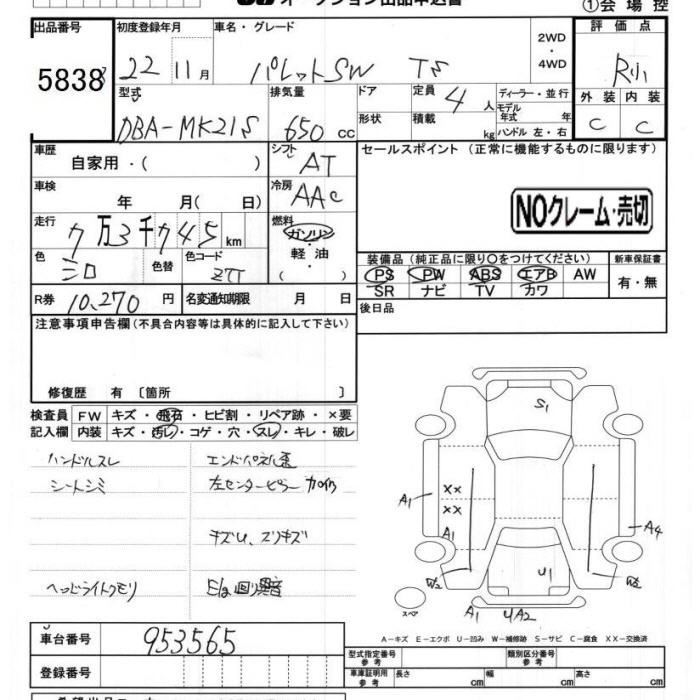 オークション出品申込書 ①会場控
出品番号 初度登録年月 車名・グレード 2WD・4WD 評価点
5838 22 11月 パレットSW TS R小
型式 排気量 ドア 定員 4人 ディーラー・並行 外装 内装
モデル年式 年
DBA-MK21S 650cc 形状 積載 kg ハンドル 左・右 C C
車歴 シフト AT セールスポイント(正常に機能するものに限ります)
自家用・( )
車検 冷房 AAC
年 月( 日) NOクレーム・売切
走行 7万3千745km 燃料 ガソリン・軽油・( )
色 シロ 色替 色コード Z7T
装備品(純正品に限り○をつけてください) 新車保証書
PS PW ABS エアB AW 有・無
SR ナビ TV カワ
R券 10,270円 名変通知期限 月 日 後日品
注意事項申告欄(不具合内容等は具体的に記入して下さい)
修復歴 有〔箇所 〕
検査員記入欄 FW キズ・飛石・ヒビ割・リペア跡・×要
内装 キズ・汚レ・コゲ・穴・スレ・キレ・破レ
ハンドルスレ エンドパネル
シートシミ 左センターピラー
キズU、スリキズ
ヘッドライトクモリ 回り異音
S1
A1 XX
XX
A1 A4
W2 U1 W2
スペア A1 UA2
A-キズ E-エクボ U-凹み W-補修跡 S-サビ C-腐食 XX-交換済
車台番号 953565
型式指定番号 参考 類別区分番号 参考
登録番号 車庫証明用 参考 長さ cm 幅 cm 高さ cm